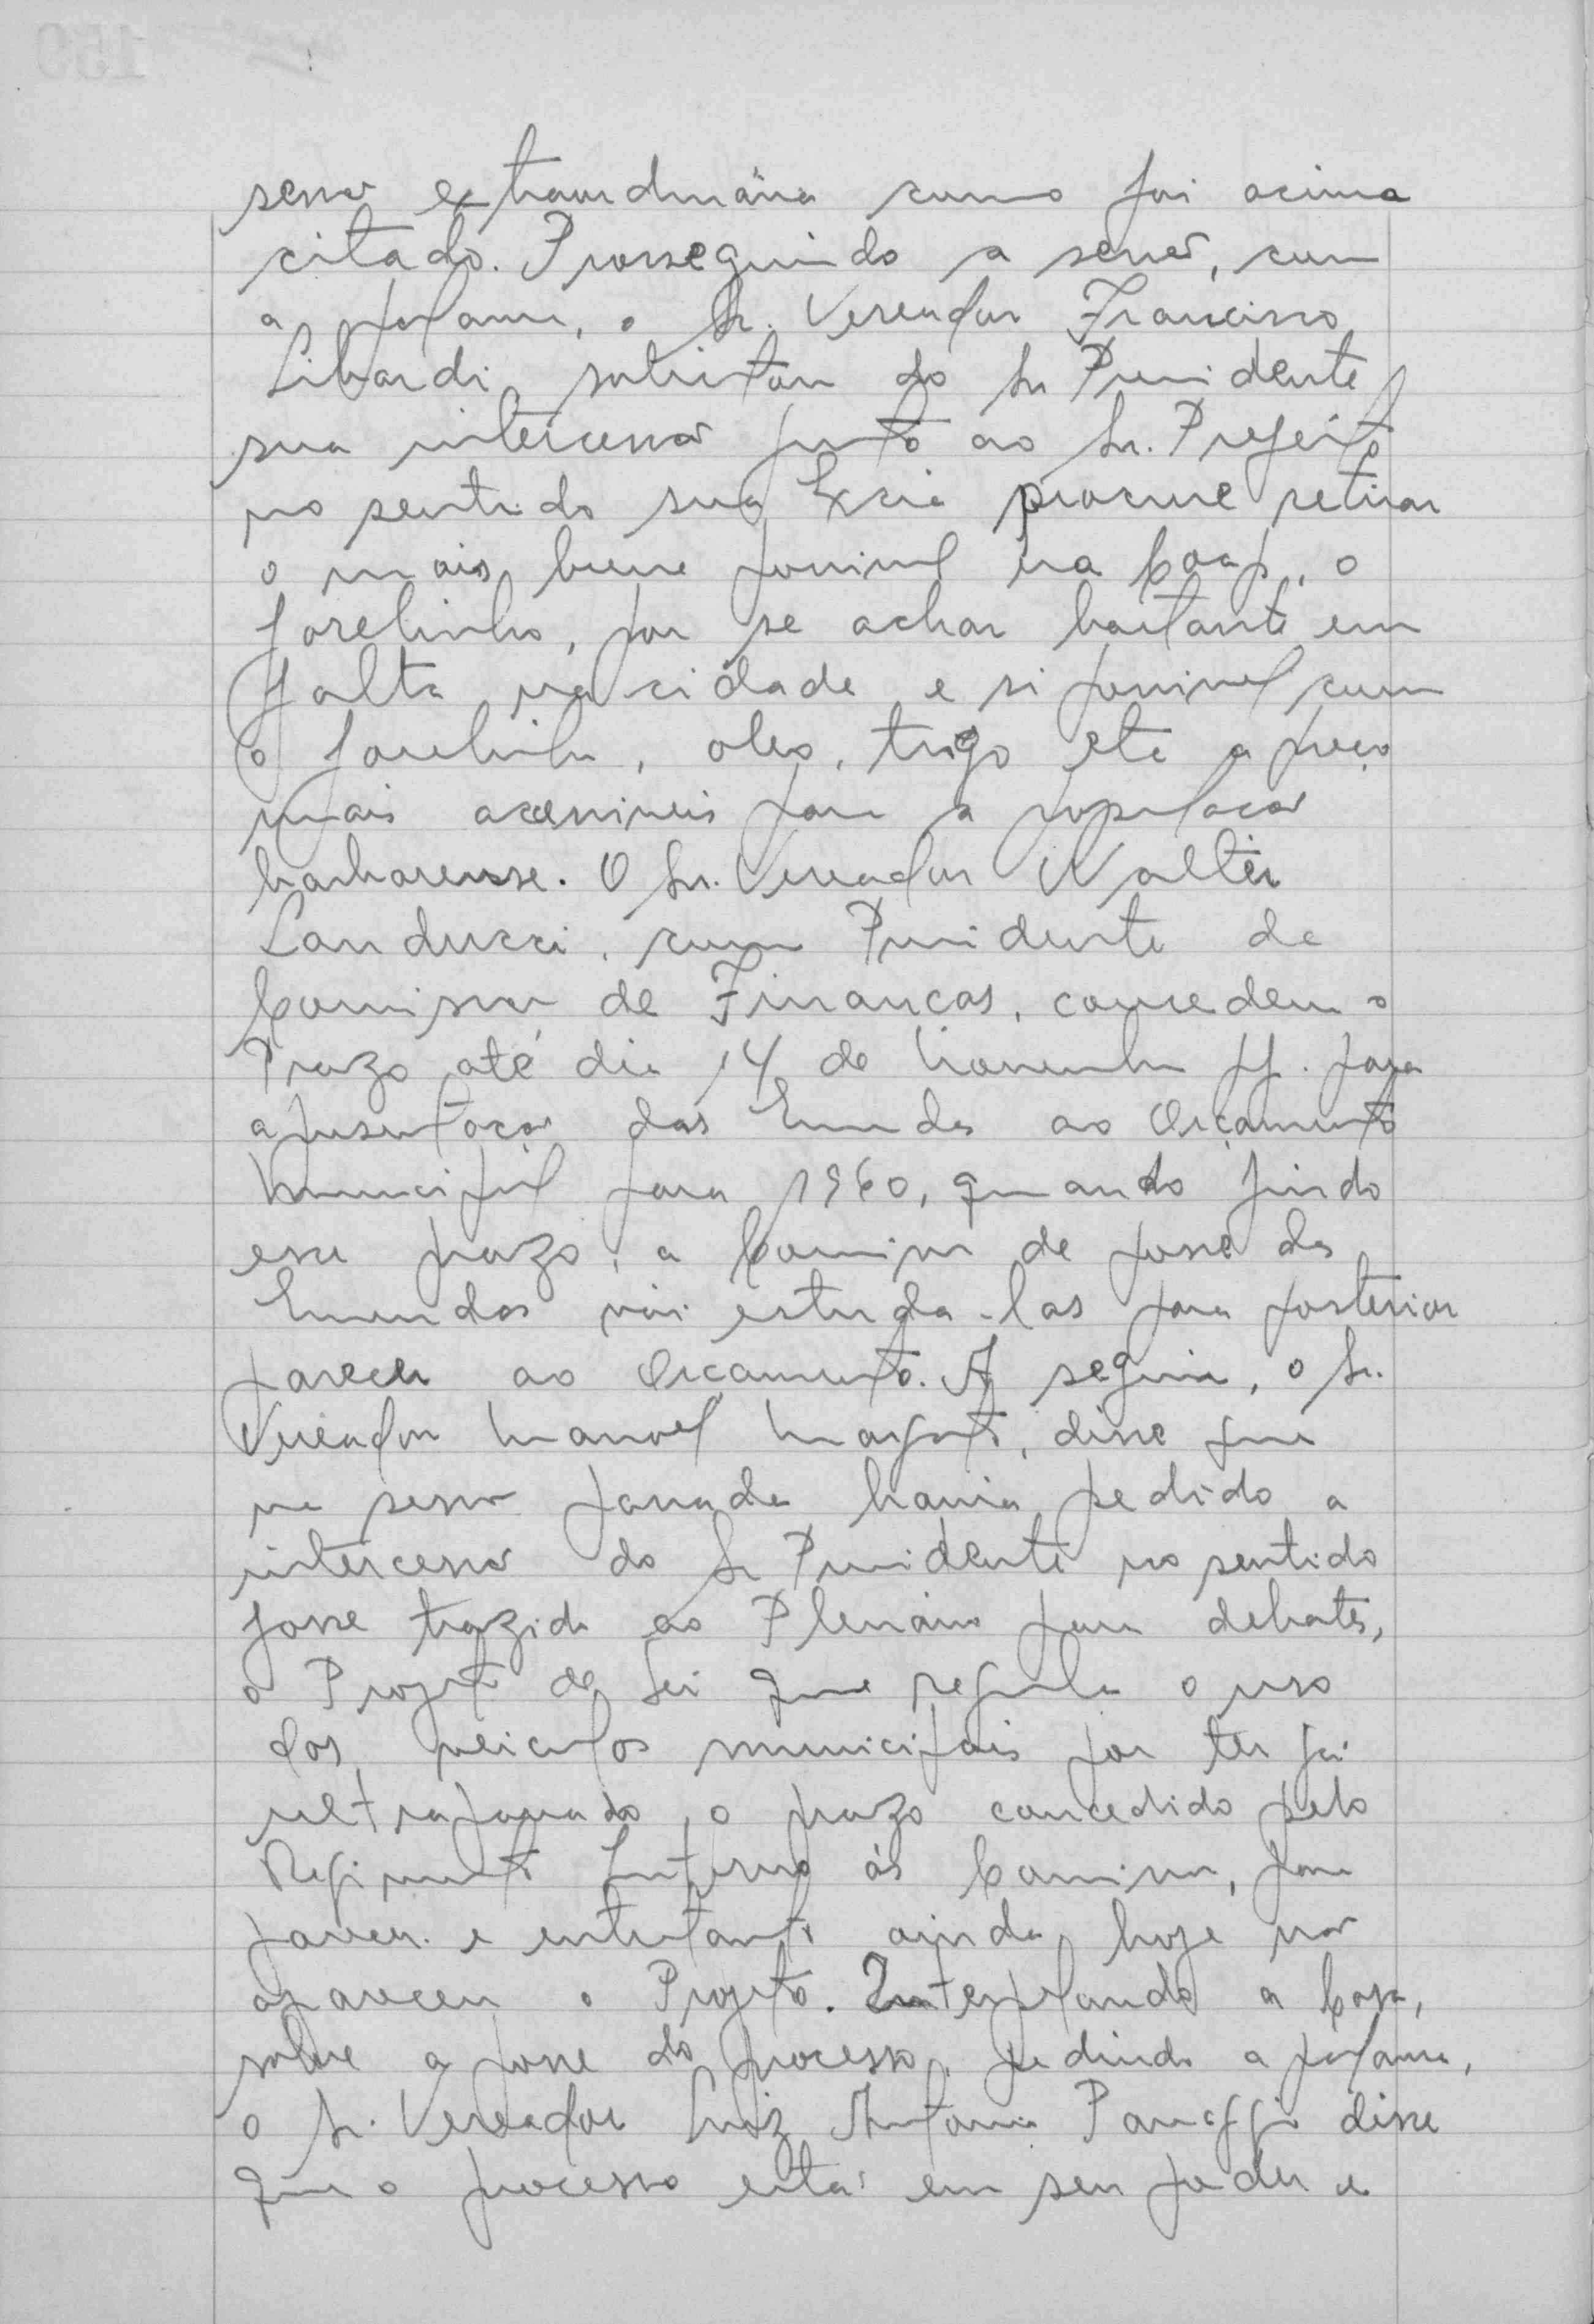 sessão extraordinária como foi acima
citado. Prosseguindo a sessão, com
a palavra, o Sr. Vereador Francisco
Libardi, solicitou do Sr Presidente
sua intercessão junto ao Sr. Prefeito
no sentido sua Excia procure retirar
o mais breve possivel na Coap, o
farelinho, por se achar bastante em
falta na cidade e si possivel com
o farelinho, oleo, trigo etc a preço
mais acessiveis para a população
barbarense. O Sr. Vereador Walter
Landucci, como Presidente da
Comissão de Finanças, concedeu o
Prazo até dia 14 de Novembro pf. para
apresentação das Emendas ao Orçamento
Municipal para 1960, quando findo
esse prazo, a Comissão de posse das
Emendas vai estuda-las para posterior
parecer ao Orcamento. A seguir, o Sr.
Vereador Manoel, disse que
na sessão passada havia pedido a
intercessão do Sr Presidente no sentido
fosse trazido ao Plenário para debates,
o Projeto de Lei que regula o uso
dos veiculos municipais por ter já
ultrapassado, o prazo concedido pelo
Regimento Interno ás Comissões, para
parecer e entretanto ainda hoje não
apareceu o Projeto. Interpelando a Casa,
sobre a posse do processo, pedindo a palavra,
o Sr. Vereador Luiz Antonio Panaggio disse
que o processo está em seu poder e